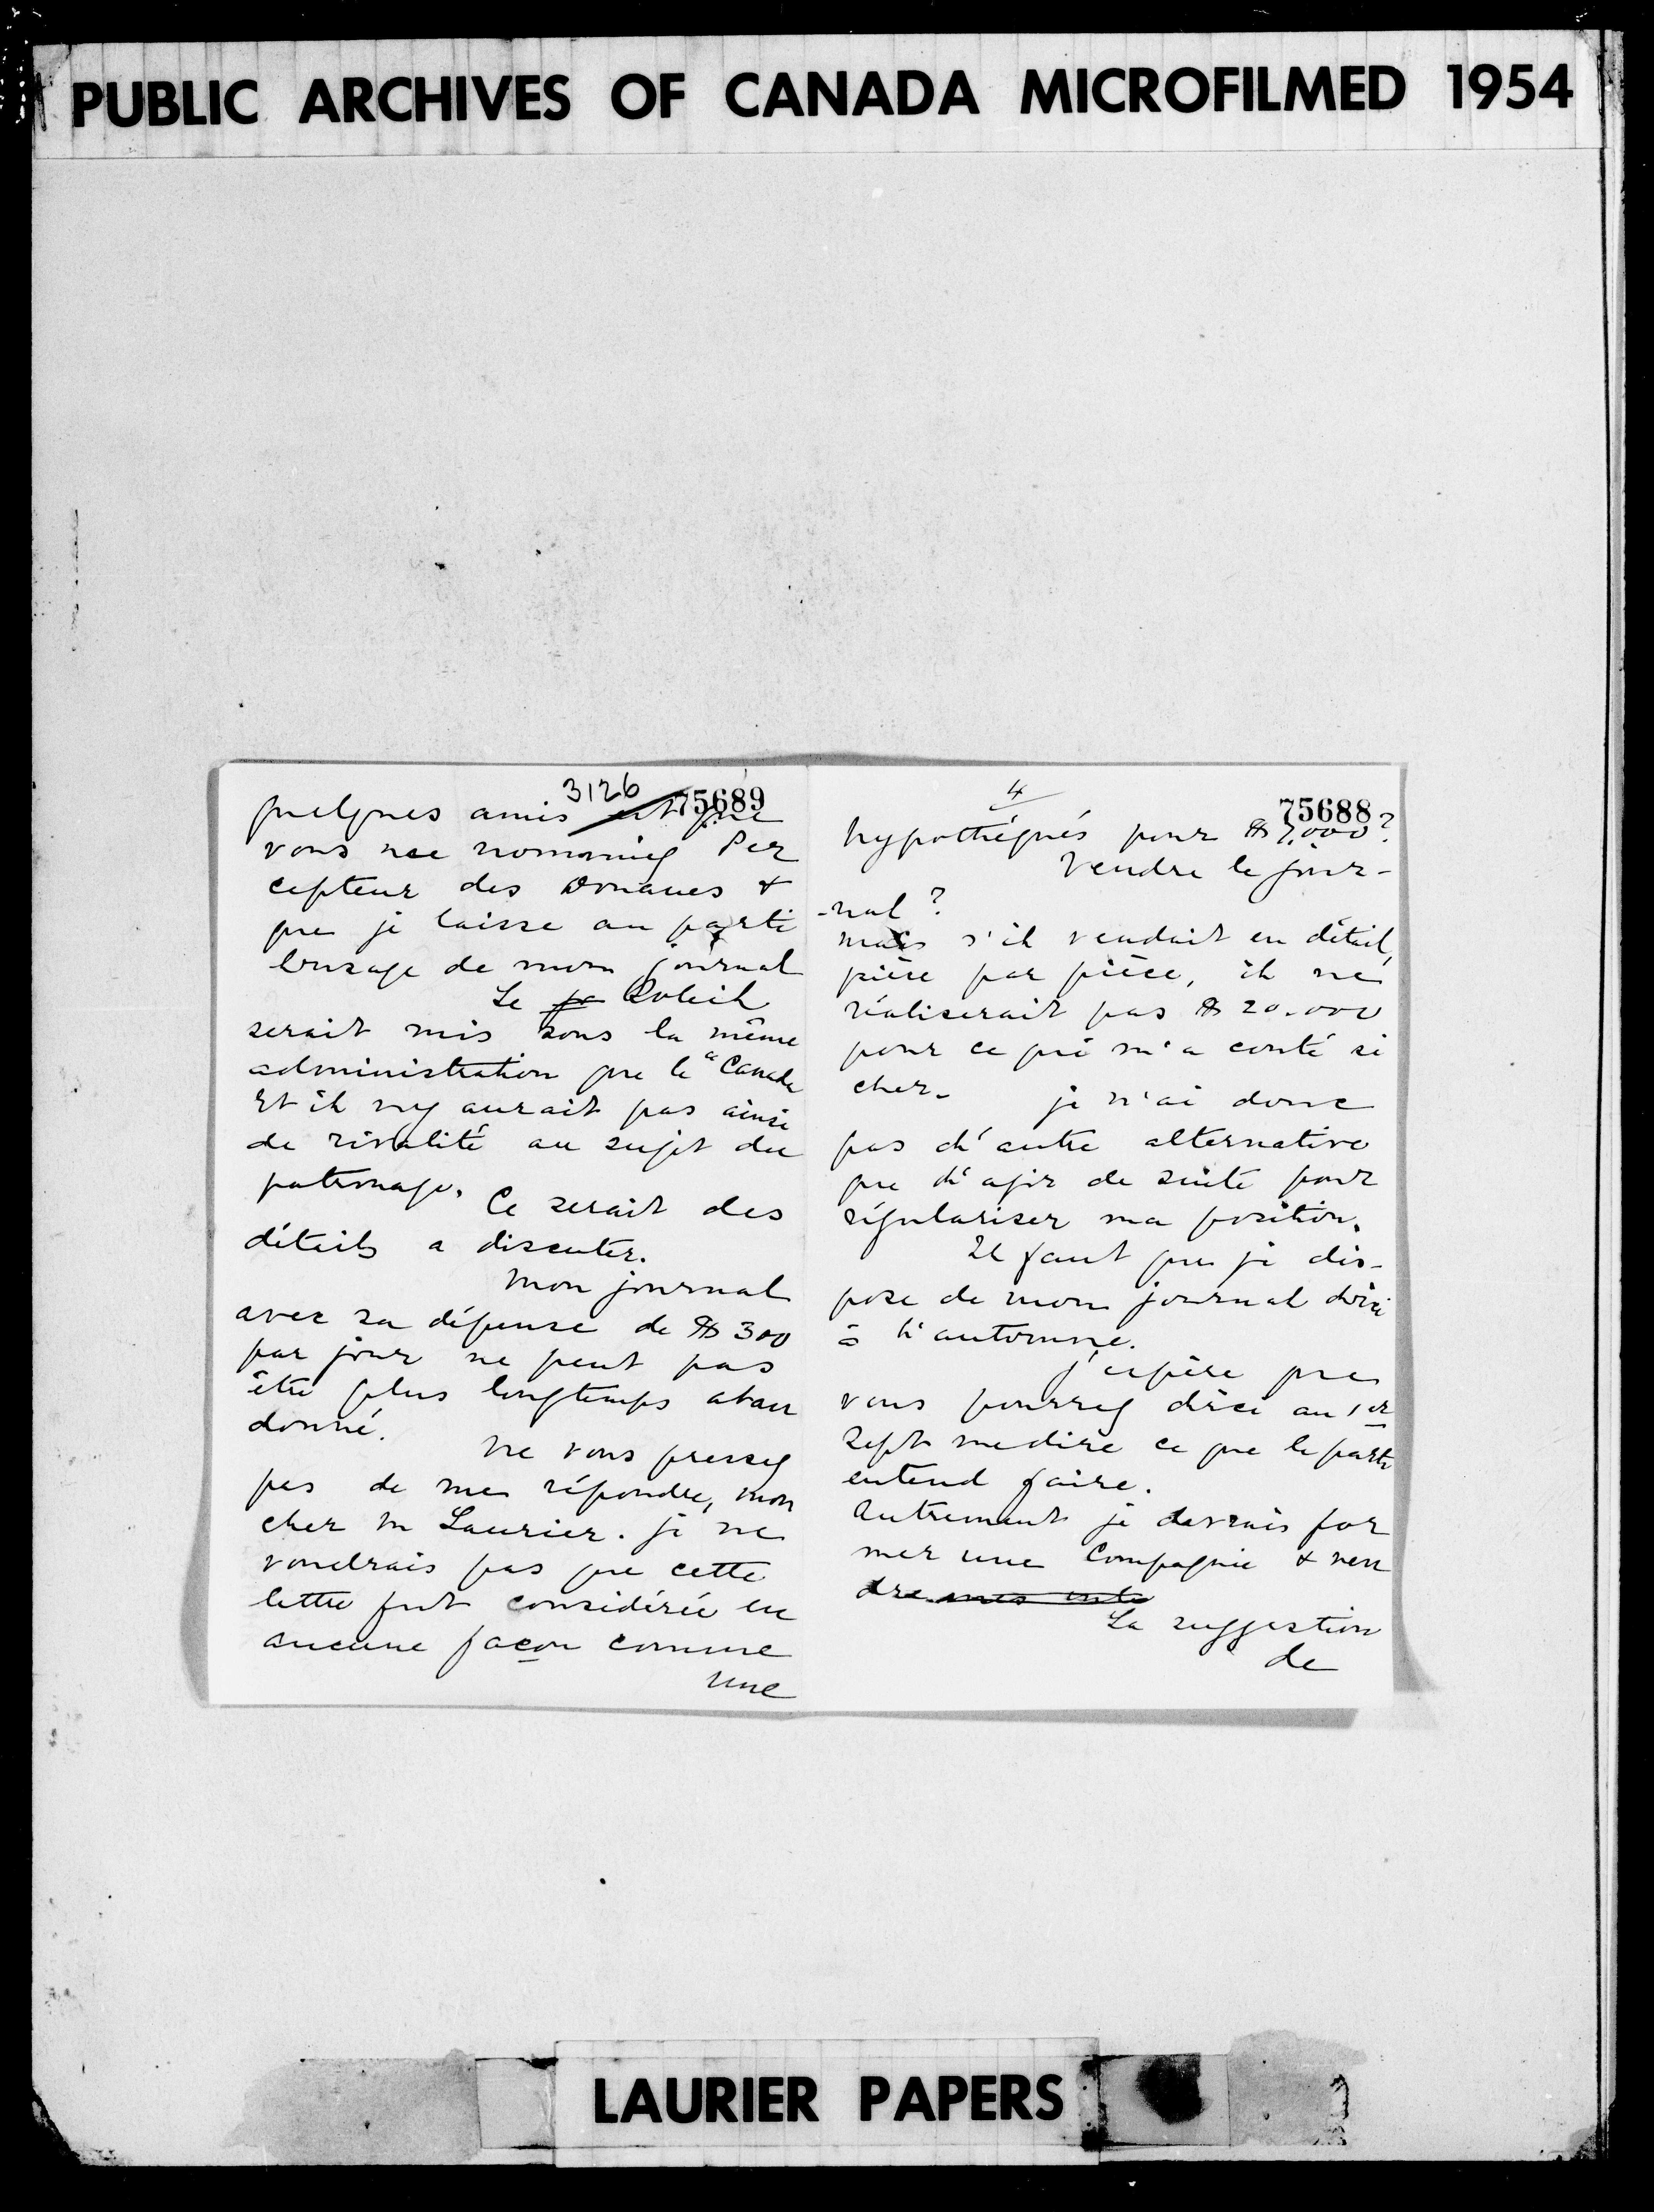 PUBLIC ARCHIVES OF CANADA MICROFILMED 1954
4
75688
hypothéqués pour $7,000?
Vendre le jour-
-nal?
mais s'il vendait en détail,
pièce par pièce, il ne
réaliserait pas $20.000
pour ce qui m'a couté si
cher.
je n'ai donc
pas d'autre alternative
que d'agir de suite pour
régulariser ma position.
Il faut que je dis-
pose de mon journal d'ici
à l'automne.
J'espère que
vous pourrez d'ici au 1er
Sept me dire ce que le parti
entend faire.
Autrement je devrais for
mer une Compagnie & ven
dre mes
La suggestion
de
3126
75689
quelques amis est que
vous me nommiez Per
cepteur des Douanes &
que je laisse au parti
l'usage de mon journal
Le Soleil
serait mis sous la même
administration que le "Canada
Et il n'y aurait pas ainsi
de rivalité au sujet du
patronage.
Ce serait des
détails a discuter.
Mon journal
avec sa dépense de $300
par jour ne peut pas
être plus longtemps aban
donné.
Ne vous pressez
pas de me répondre, mon
cher M Laurier. je ne
voudrais pas que cette
lettre fut considérée en
aucune façon comme
une
LAURIER PAPERS